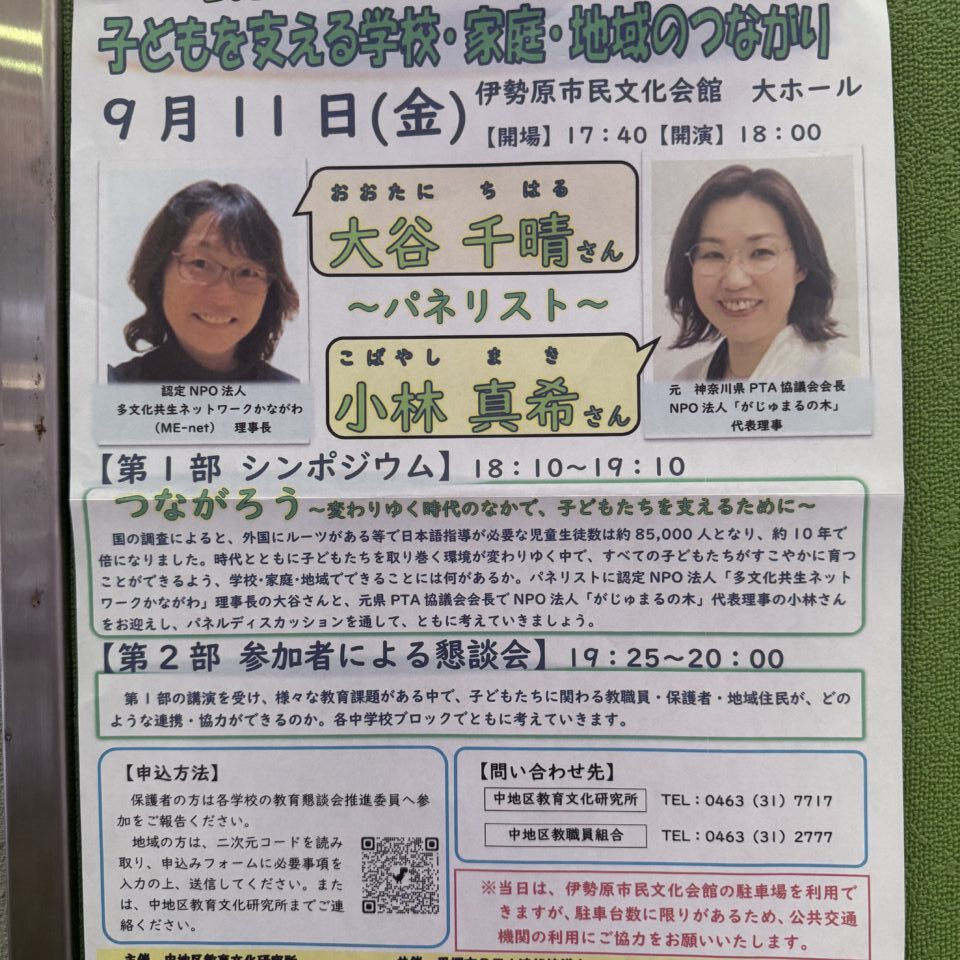 子どもを支える学校・家庭・地域のつながり
9月11日(金)
伊勢原市民文化会館 大ホール
【開場】17:40【開演】18:00
おおたに ちはる
大谷 千晴さん
~パネリスト~
こばやし まき
小林 真希さん
認定NPO法人
多文化共生ネットワークかながわ
(ME-net) 理事長
元 神奈川県PTA協議会会長
NPO法人「がじゅまるの木」
代表理事
【第1部 シンポジウム】18:10~19:10
つながろう ~変わりゆく時代のなかで、子どもたちを支えるために~
国の調査によると、外国にルーツがある等で日本語指導が必要な児童生徒数は約85,000人となり、約10年で
倍になりました。時代とともに子どもたちを取り巻く環境が変わりゆく中で、すべての子どもたちがすこやかに育つ
ことができるよう、学校・家庭・地域でできることには何があるか。パネリストに認定NPO法人「多文化共生ネット
ワークかながわ」理事長の大谷さんと、元県PTA協議会会長でNPO法人「がじゅまるの木」代表理事の小林さん
をお迎えし、パネルディスカッションを通して、ともに考えていきましょう。
【第2部 参加者による懇談会】19:25~20:00
第1部の講演を受け、様々な教育課題がある中で、子どもたちに関わる教職員・保護者・地域住民が、どの
ような連携・協力ができるのか。各中学校ブロックでともに考えていきます。
【申込方法】
保護者の方は各学校の教育懇談会推進委員へ参
加をご報告ください。
地域の方は、二次元コードを読み
取り、申込みフォームに必要事項を
入力の上、送信してください。また
は、中地区教育文化研究所までご連
絡ください。
【問い合わせ先】
中地区教育文化研究所 TEL:0463(31)7717
中地区教職員組合 TEL:0463(31)2777
※当日は、伊勢原市民文化会館の駐車場を利用で
きますが、駐車台数に限りがあるため、公共交通
機関の利用にご協力をお願いいたします。
主催 中地区教育文化研究所